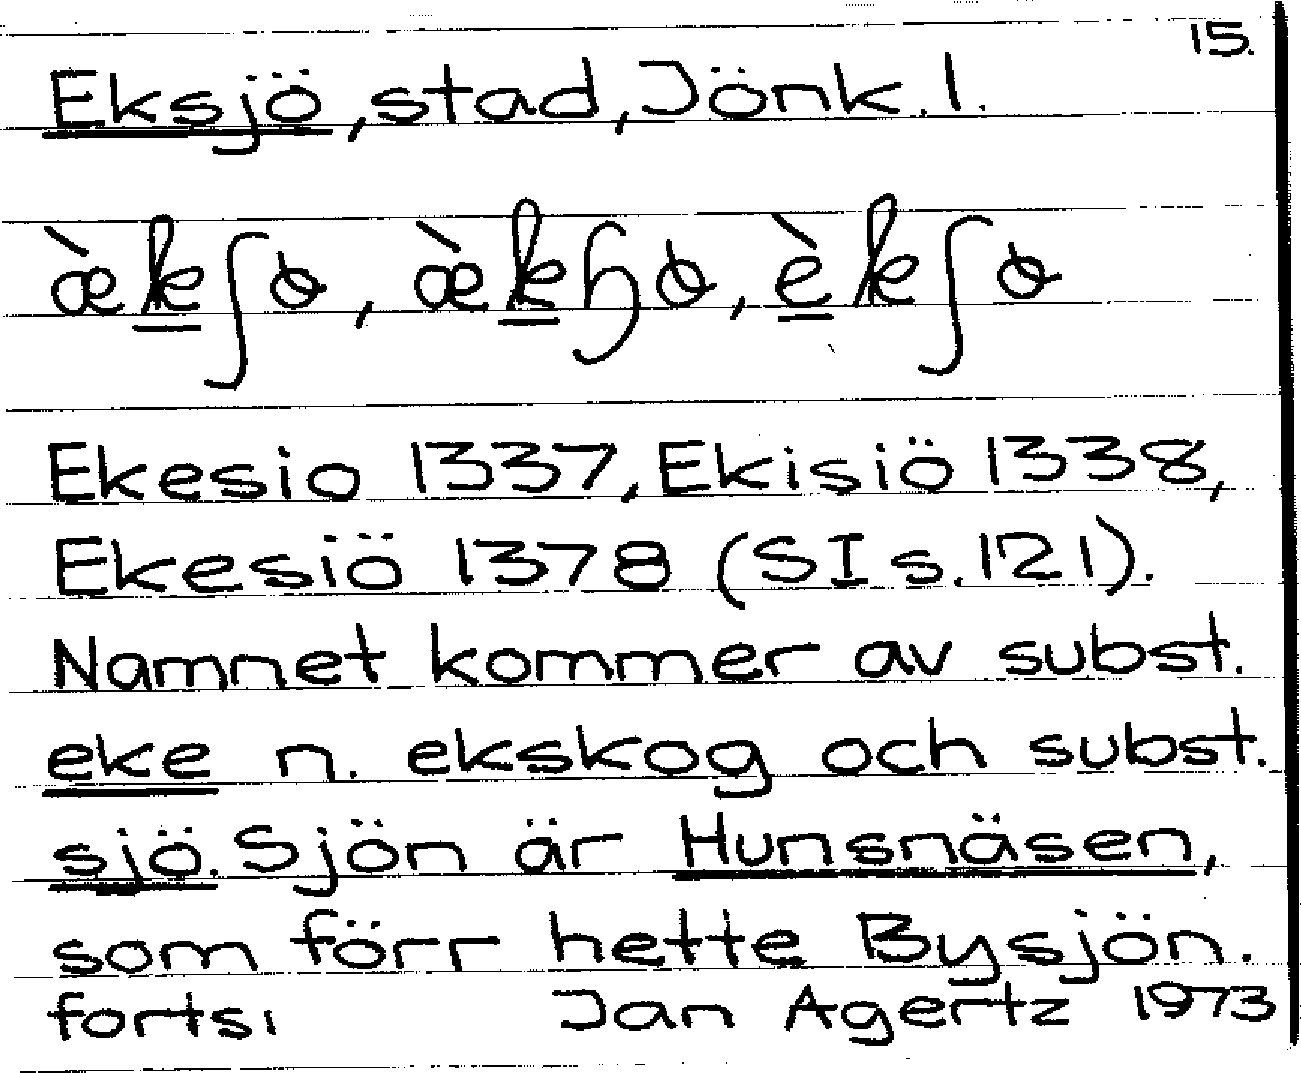 15.
Eksjö, stad, Jönk. l.
Ekesio 1337, Ekisiö 1338,
Ekesiö 1378 (SI s. 121).
Namnet kommer av subst.
eke n. ekskog och subst.
sjö. Sjön är Hunsnäsen,
som förr hette Bysjön.
forts. Jan Agertz 1973